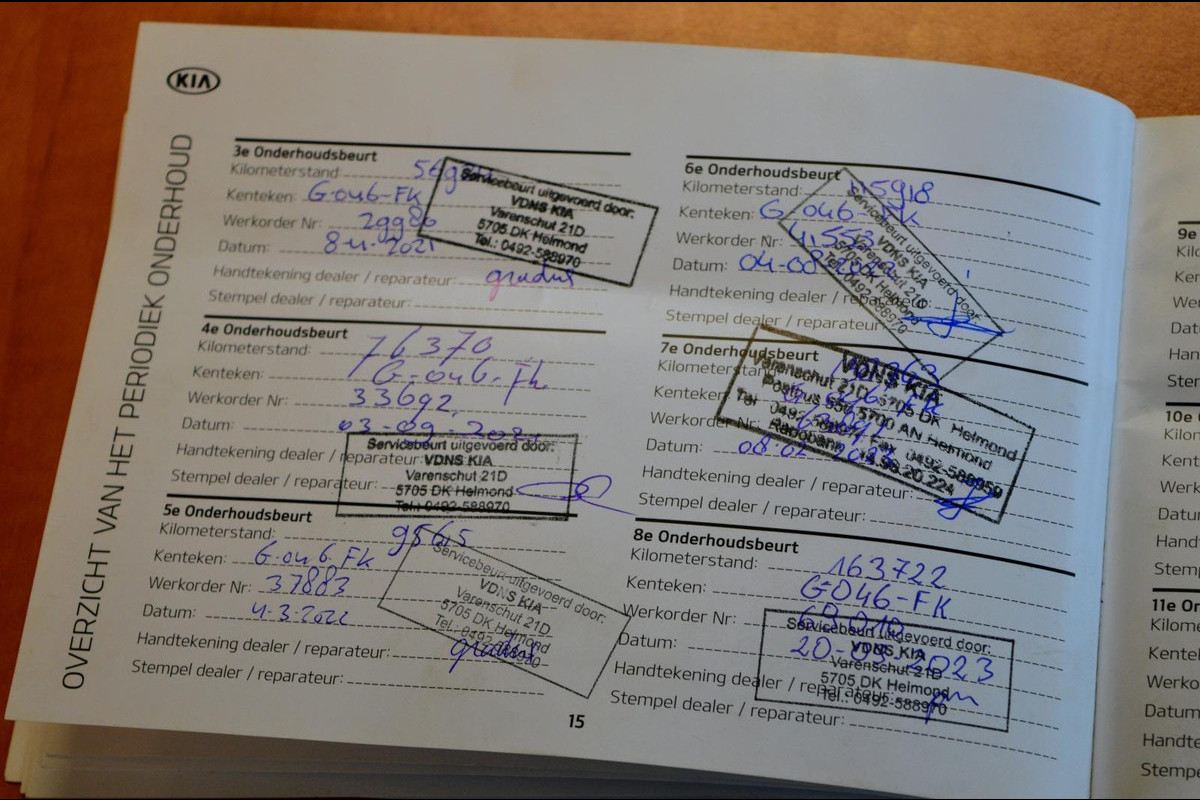 KIA
OVERZICHT VAN HET PERIODIEK ONDERHOUD
3e Onderhoudsbeurt
Kilometerstand:
Kenteken: G-046-FK
Werkorder Nr: 29980
Datum: 8-4-2021
Handtekening dealer / reparateur: gradus
Stempel dealer / reparateur:
Servicebeurt uitgevoerd door:
VDNS KIA
Varenschut 21D
5705 DK Helmond
Tel.: 0492-588970
4e Onderhoudsbeurt
Kilometerstand: 76370
Kenteken: G-046-Fk
Werkorder Nr: 33692
Datum: 03-09-
Handtekening dealer / reparateur:
Stempel dealer / reparateur:
Servicebeurt uitgevoerd door:
VDNS KIA
Varenschut 21D
5705 DK Helmond
Tel.: 0492-588970
5e Onderhoudsbeurt
Kilometerstand:
Kenteken: G-046-FK
Werkorder Nr: 37883
Datum: 4-3-2022
Handtekening dealer / reparateur: gradus
Stempel dealer / reparateur:
Servicebeurt uitgevoerd door:
VDNS KIA
Varenschut 21D
5705 DK Helmond
Tel.: 0492-588970
15
6e Onderhoudsbeurt
Kilometerstand: 115918
Kenteken: G-046-FK
Werkorder Nr:
Datum: 04-08-
Handtekening dealer / reparateur:
Stempel dealer / reparateur:
Servicebeurt uitgevoerd door:
VDNS KIA
Varenschut 21D
5705 DK Helmond
Tel.: 0492-588970
7e Onderhoudsbeurt
Kilometerstand:
Kenteken:
Werkorder Nr:
Datum: 08-02-
Handtekening dealer / reparateur:
Stempel dealer / reparateur:
VDNS KIA
Varenschut 21D, 5705 DK Helmond
Postbus 556, 5700 AN Helmond
Tel. 0492-588970 Fax 0492-588959
Rabobank
8e Onderhoudsbeurt
Kilometerstand: 163722
Kenteken: G046-FK
Werkorder Nr:
Datum: 20-09-2023
Handtekening dealer / reparateur:
Stempel dealer / reparateur:
Servicebeurt uitgevoerd door:
VDNS KIA
Varenschut 21D
5705 DK Helmond
Tel.: 0492-588970
9e
Kilo
Ken
We
Dat
Han
Ster
10e
Kilom
Kente
Werk
Datu
Hand
Stem
11e On
Kilome
Kentek
Werko
Datum
Handte
Stempe